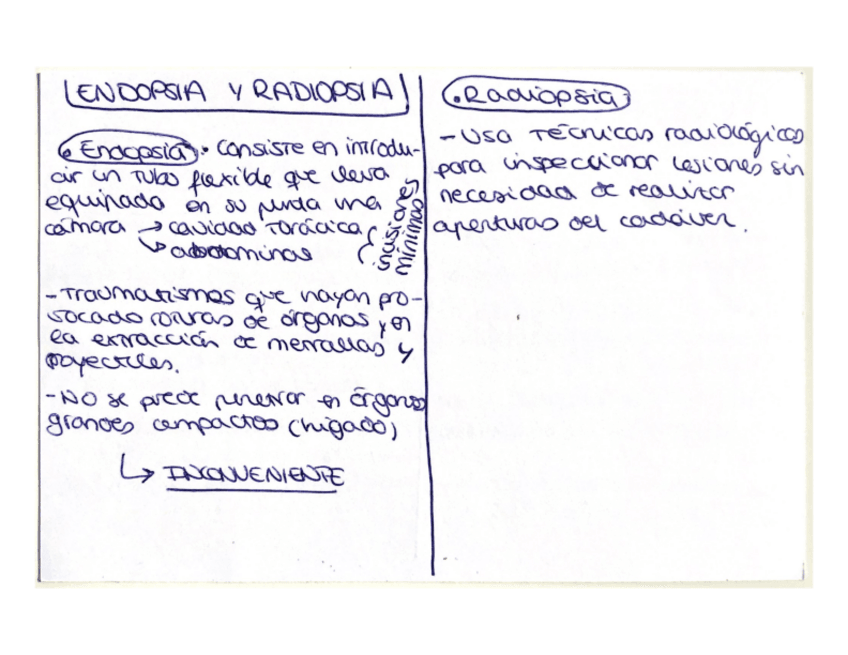 ENDOPSIA Y RADIOPSIA
• Endopsia • Consiste en introdu-
cir un tubo flexible que lleva
equipada en su punta una
cámara → cavidad torácica
↳ abdominas
incisiones
mínimas
- Traumatismos que hayan pro-
vocado roturas de órganos y en
la extracción de metrallas y
proyectiles.
- NO se puede penetrar en órganos
grandes compactos (hígado)
↳ INCONVENIENTE
• Radiopsia
- Usa técnicas radiológicas
para inspeccionar lesiones sin
necesidad de realizar
aperturas del cadáver.